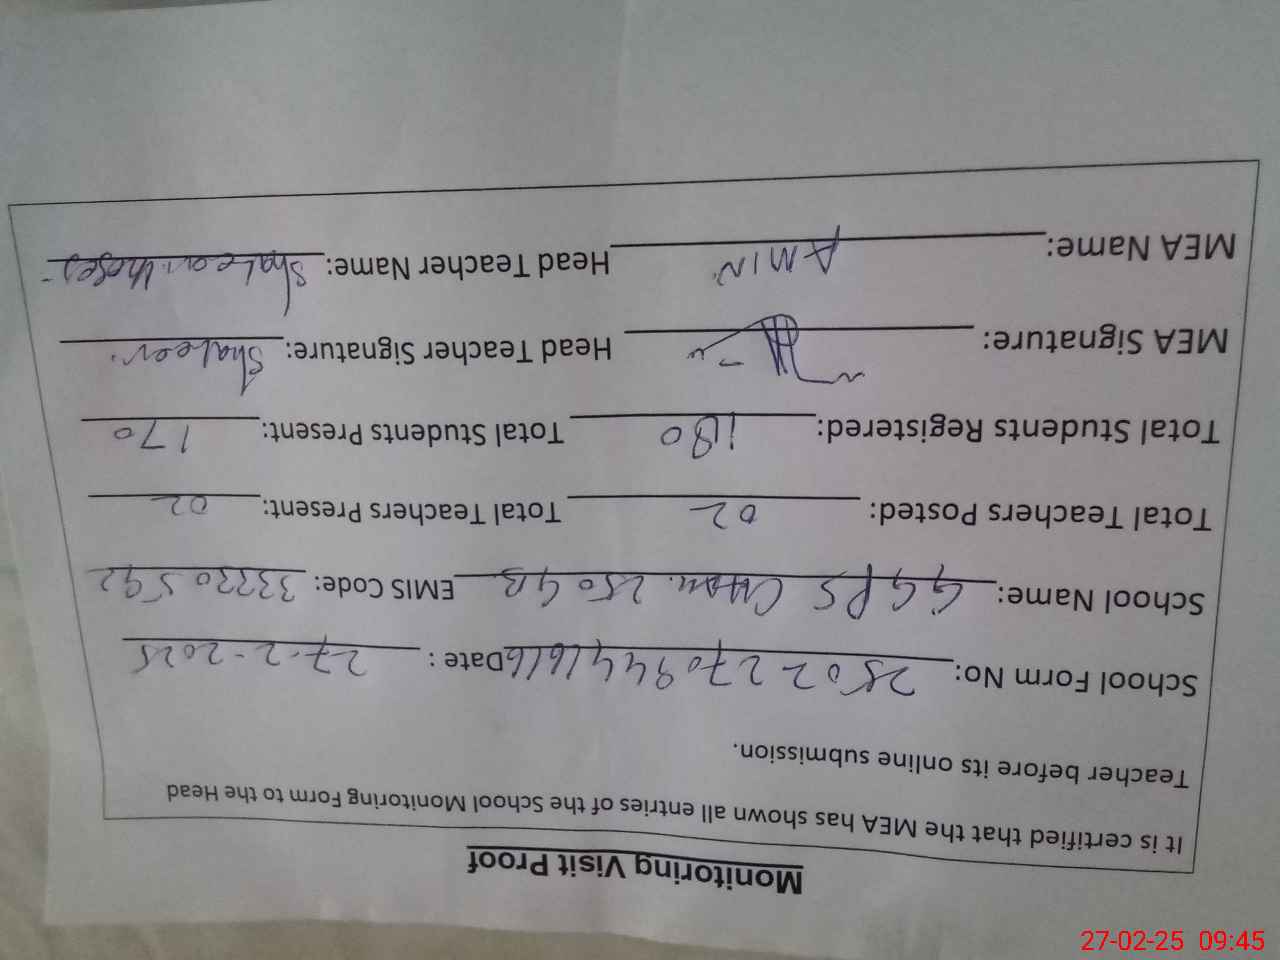 Monitoring Visit Proof
It is certified that the MEA has shown all entries of the School Monitoring Form to the Head
Teacher before its online submission.
School Form No: 25022709441616 Date : 27-2-2025
School Name: GGPS CHAK. 250 GB EMIS Code: 33220592
Total Teachers Posted: 02 Total Teachers Present: 02
Total Students Registered: 180 Total Students Present: 170
MEA Signature: Head Teacher Signature:
MEA Name: AMIN Head Teacher Name:
27-02-25 09:45